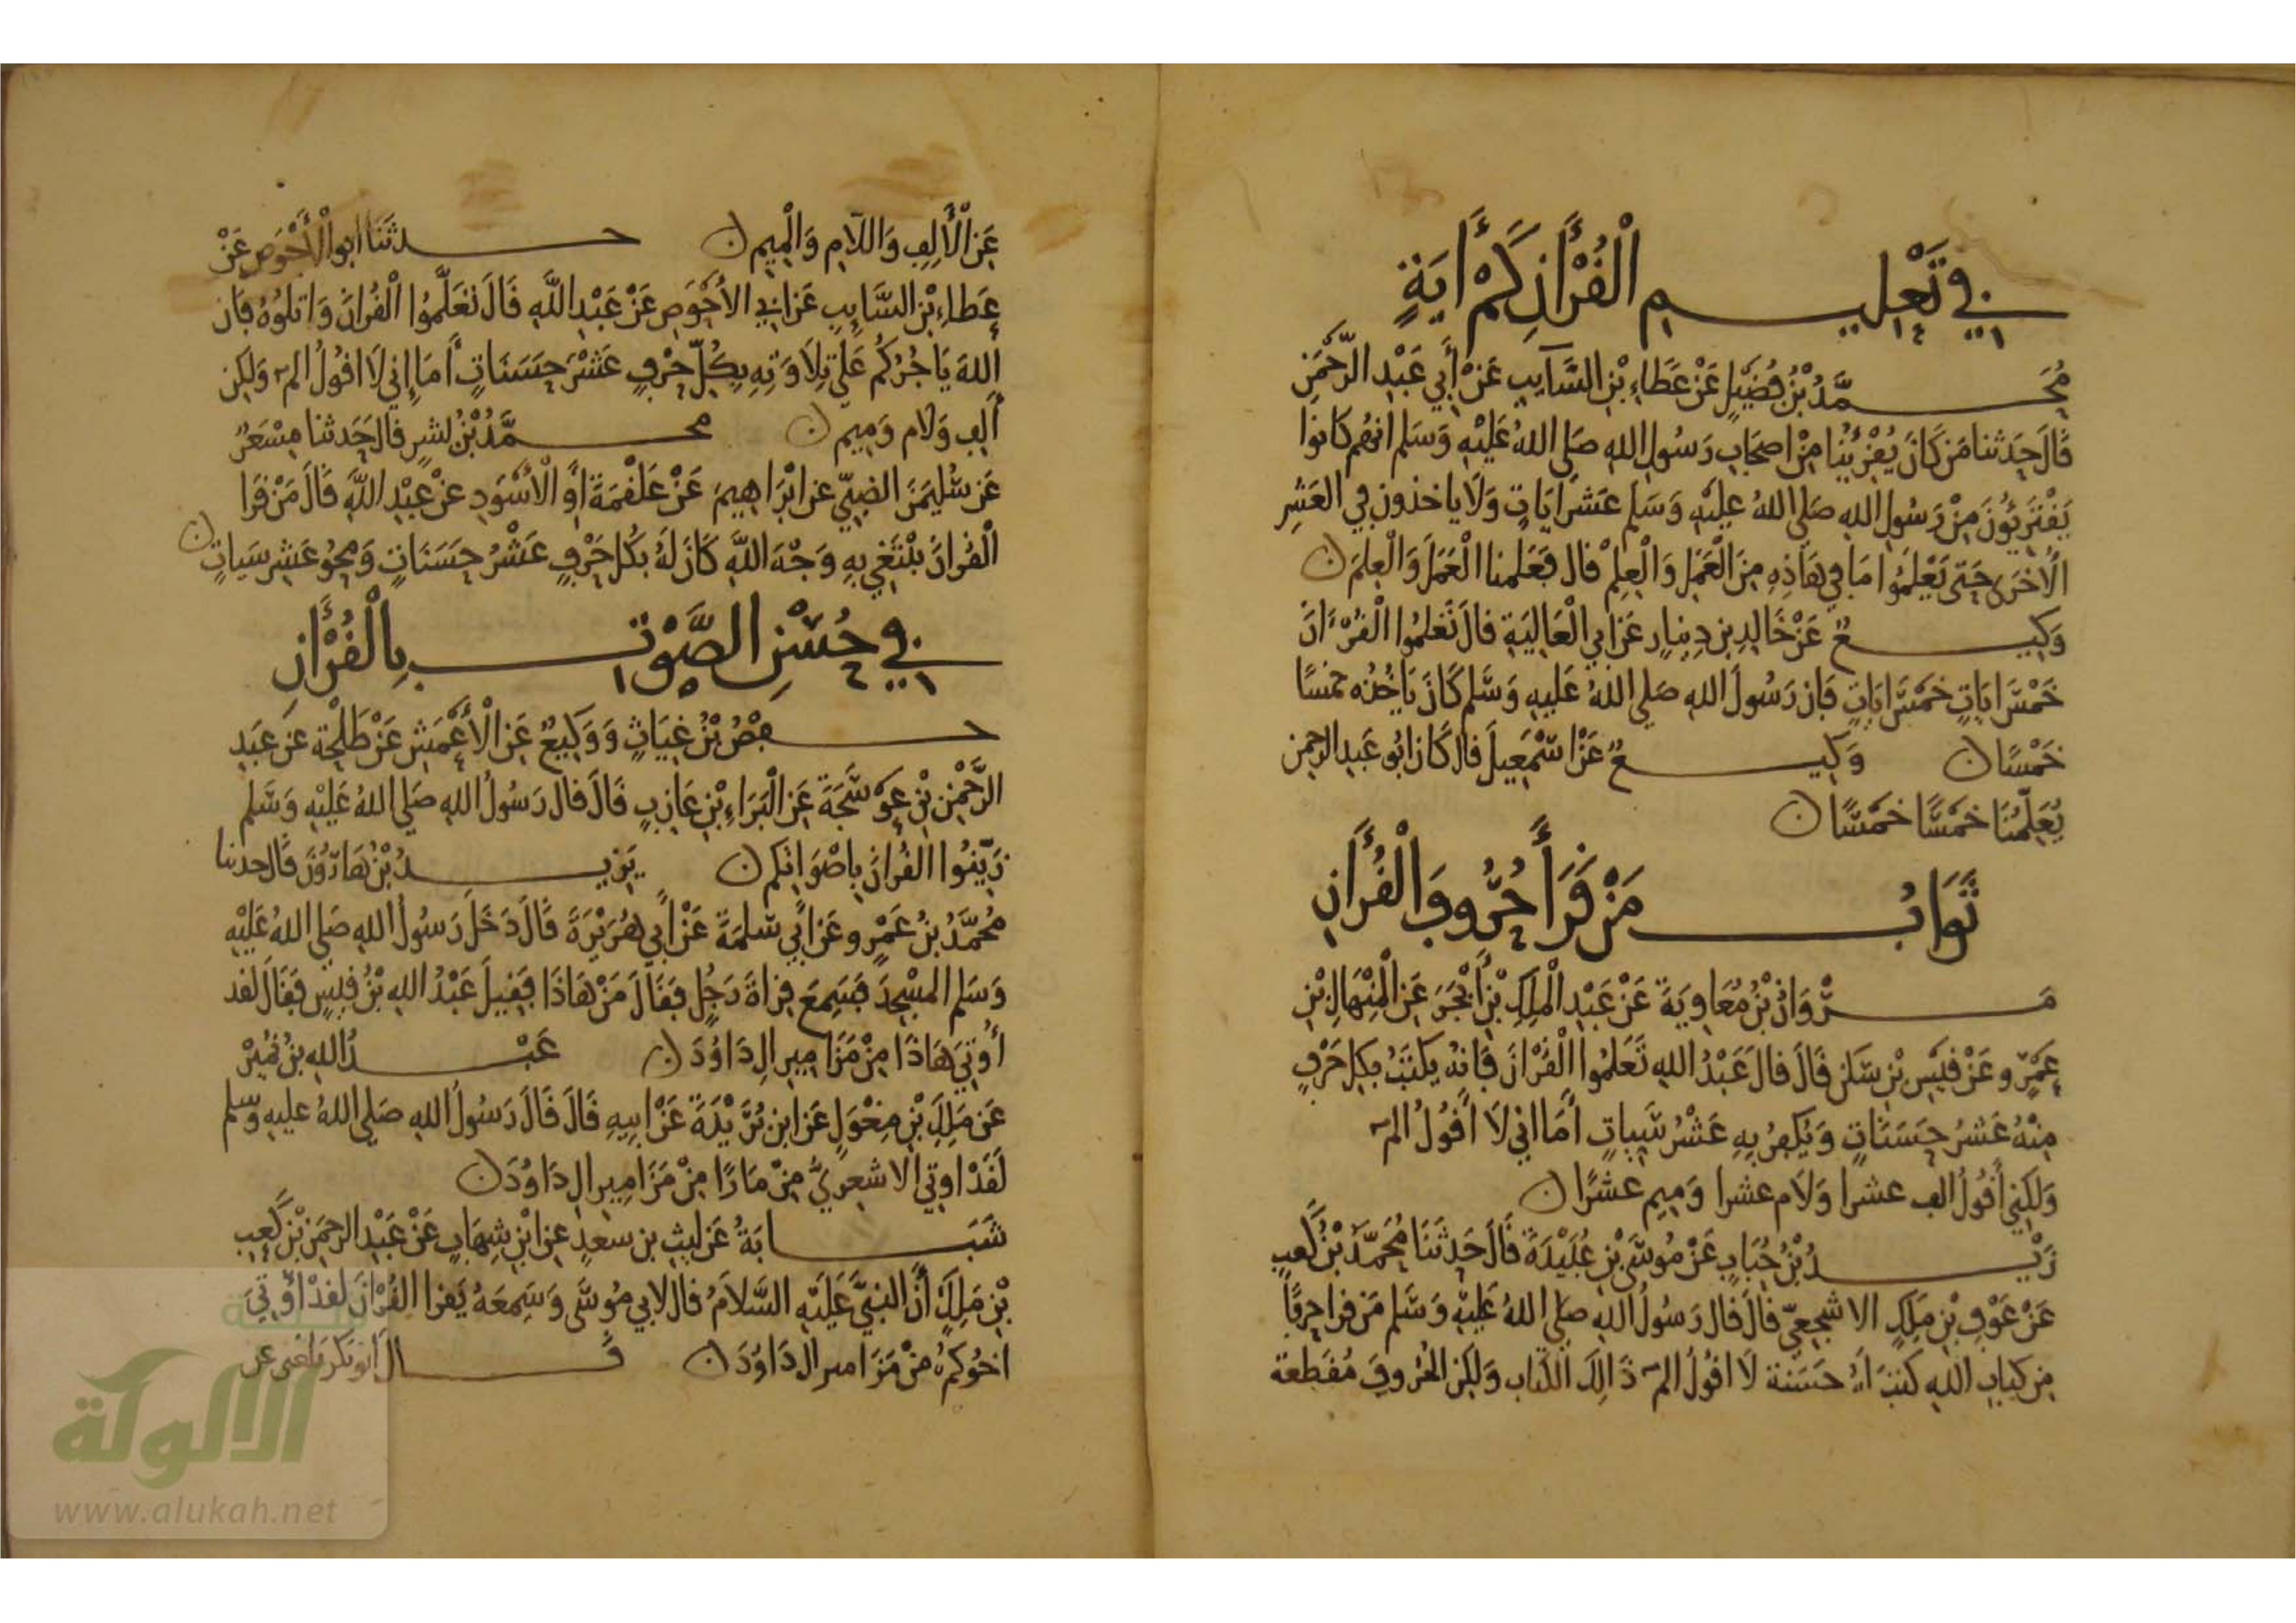 في تَعْلِيمِ الْقُرْأَنِ كَمْ أَيَةٍ
مُحَمَّدُ بْنُ فُضَيْلٍ عَنْ عَطَاءِ بْنِ السَّايِبِ عَنْ أَبِي عَبْدِ الرَّحْمَنِ
قَالَ حَدثنا مَن كَانَ يُقْرِئُنا مِنْ اصحَابِ رَسُولِ اللهِ صَلى اللهُ عَلَيْهِ وَسَلم انهُم كانوا
يَقْتَرِئُونَ مِنْ رَسُولِ اللهِ صَلى اللهُ عليْهِ وَسَلم عَشرَ ايَاتٍ وَلَا ياخذون في العَشِرِ
الأُخرَى حَتى يَعْلَمُوا مَا في هَاذِهِ مِنَ الْعَمَلِ وَالْعِلمْ قال فَعَلمنا الْعَمَلَ وَالْعِلمَ ن
وَكِيعٌ عَنْ خَالِدِ بن دِينارٍ عَن ابي الْعَالِيَةِ قالَ تَعَلمُوا الْقُرْءَانَ
خَمْسَ ايَاتٍ خَمْسَ ايَاتٍ فَإن رَسُولَ اللهِ صَلى اللهُ عَليهِ وَسَلم كَانَ يَاخُذه خمسًا
خَمْسًا ن وَكِيعٌ عَنْ اسْمَعِيلَ قال كَانَ ابُو عَبد الرحمن
يُعَلِّمُنَا خَمسًا خَمسًا ن
ثَوَابُ مَنْ قَرَأَ حُرُوفَ الْقُرأَنِ
مَرْوَانُ بْنُ مُعَاوِيَةَ عَنْ عَبْدِ الْمَلِكِ بْنِ أَبْجَرَ عَنِ الْمِنْهَالِ بْنِ
عَمْرٍو عَنْ قَيْسِ بْنِ سَكَنٍ قَالَ قَالَ عَبْدُ اللهِ تَعَلمُوا الْقُرْانَ فَانهُ يكتَبُ بِكلِ حَرْفٍ
مِنْهُ عَشرُ حِسَنَاتٍ وَيُكفرُ بِهِ عَشْرُ سَيِياتٍ أَمَا اني لَا أَقُولُ الم
وَلكِني أَقُولُ الف عشرا وَلَام عشرا وَمِيم عشرًا ن
زَيْدُ بْنُ حُبَابٍ عَنْ مُوسَى بْنِ عُبَيْدَةَ قَالَ حَدثَنَا مُحَمَّدُ بْنُ كَعبٍ
عَنْ عَوْفِ بْنِ مَلِكٍ الاشجعِيّ قالَ قال رَسُولُ اللهِ صَلى اللهُ عَليْهِ وَسَلم مَن قرا حرفًا
مِن كتابِ اللهِ كتبَ لهُ حسَنة لَا اقُولُ الم ذَالِكَ الكتاب وَلَكِن الحُروفَ مُقَطعة
عَنِ الْأَلِفِ وَاللَامِ وَالْمِيمِ ن حدثَنَا ابو الأَحْوَصِ عَنْ
عَطاءِ بْنِ السَّايِبِ عَن ابي الأحْوَصِ عَنْ عَبْدِ اللهِ قَالَ تعَلَّمُوا الْقُرانَ وَاتلُوهُ فَان
اللهَ يَاجُرُكُم عَلَى تِلَاوَتِهِ بِكُلِّ حَرْفٍ عَشْرَ حِسَنَاتٍ أَمَا إِني لَا اقُولُ الم وَلَكِن
أَلِفٍ وَلَام وَمِيم ن محمَّدُ بْنُ بشرٍ قالَ حَدثنا مِسْعَرٌ
عَن سُلَيمَنَ الضبيّ عن ابْرَاهِيمَ عَنْ عَلْقَمَةَ أوِ الْأَسْوَدِ عنْ عَبْدِ اللَّهِ قَالَ مَنْ قَرَا
الْقُرانَ يبْتَغِي بِهِ وَجْهَ اللَّهِ كَانَ لَهُ بكُل حَرْفٍ عَشْرُ حِسَنَاتٍ وَمحوُ عَشرِ سَياتٍ ن
في حُسْنِ الصَّوْتِ بِالْقُرْأَنِ
حفصُ بْنُ غِيَاثٍ وَوَكِيعٌ عَنِ الْأَعْمَشِ عَنْ طَلْحَة عَن عَبدِ
الرَّحْمَنِ بْنِ عَوْسَجَةَ عَنِ الْبَرَاءِ بْنِ عَازِبٍ قَالَ قال رَسُولُ اللهِ صَلى اللهُ عَلَيْهِ وَسَلم
زَيِّنُوا القُرانَ بِاصْوَاتكم ن يَزِيدُ بْنُ هَارُونَ قَالَ حدثنا
مُحَمَّدُ بنُ عَمْرٍو عَن أَبِي سَلمَةَ عَنْ أَبِي هُرَيْرَةَ قَالَ دَخَلَ رَسُولُ اللهِ صَلى اللهُ عَلَيْهِ
وَسَلم المسْجدَ فَسَمِعَ قِراةَ رَجُلٍ فقَالَ مَنْ هَاذَا فَقِيلَ عَبْدُ اللهِ بْنُ قَيسٍ فَقَالَ لقد
أُوتِيَ هَاذَا مِنْ مَزَامِيرِ الِ دَاوُدَ ن عَبْدُ اللهِ بنُ نُمَيْرٍ
عَن مَلِكِ بْنِ مِغْوَلٍ عَن ابن بُرَيْدَةَ عَنْ ابِيهِ قَالَ قَالَ رَسُولُ اللهِ صَلى اللهُ عليهِ وسلم
لَقَدْ اوتيَ الاشعَرِيُّ مِزْمَارًا مِنْ مَزَامِيرِ الِ دَاوُدَ ن
شَبَابَةُ عَن ليثِ بن سعدٍ عن ابْنِ شِهَابٍ عَنْ عَبْدِ الرحمَنِ بْنِ كَعبِ
بْنِ مَلِكٍ أَنَّ النَّبيَّ عَلَيْهِ السَّلامُ قال لابي مُوسَى وَسَمِعَهُ يَقرا القُرْانَ لَقَدْ أُوتِيَ
اخُوكم مِنْ مَزَامير ال دَاوُدَ ن قَال أبو بكر بلغني عن
الألوكة
www.alukah.net